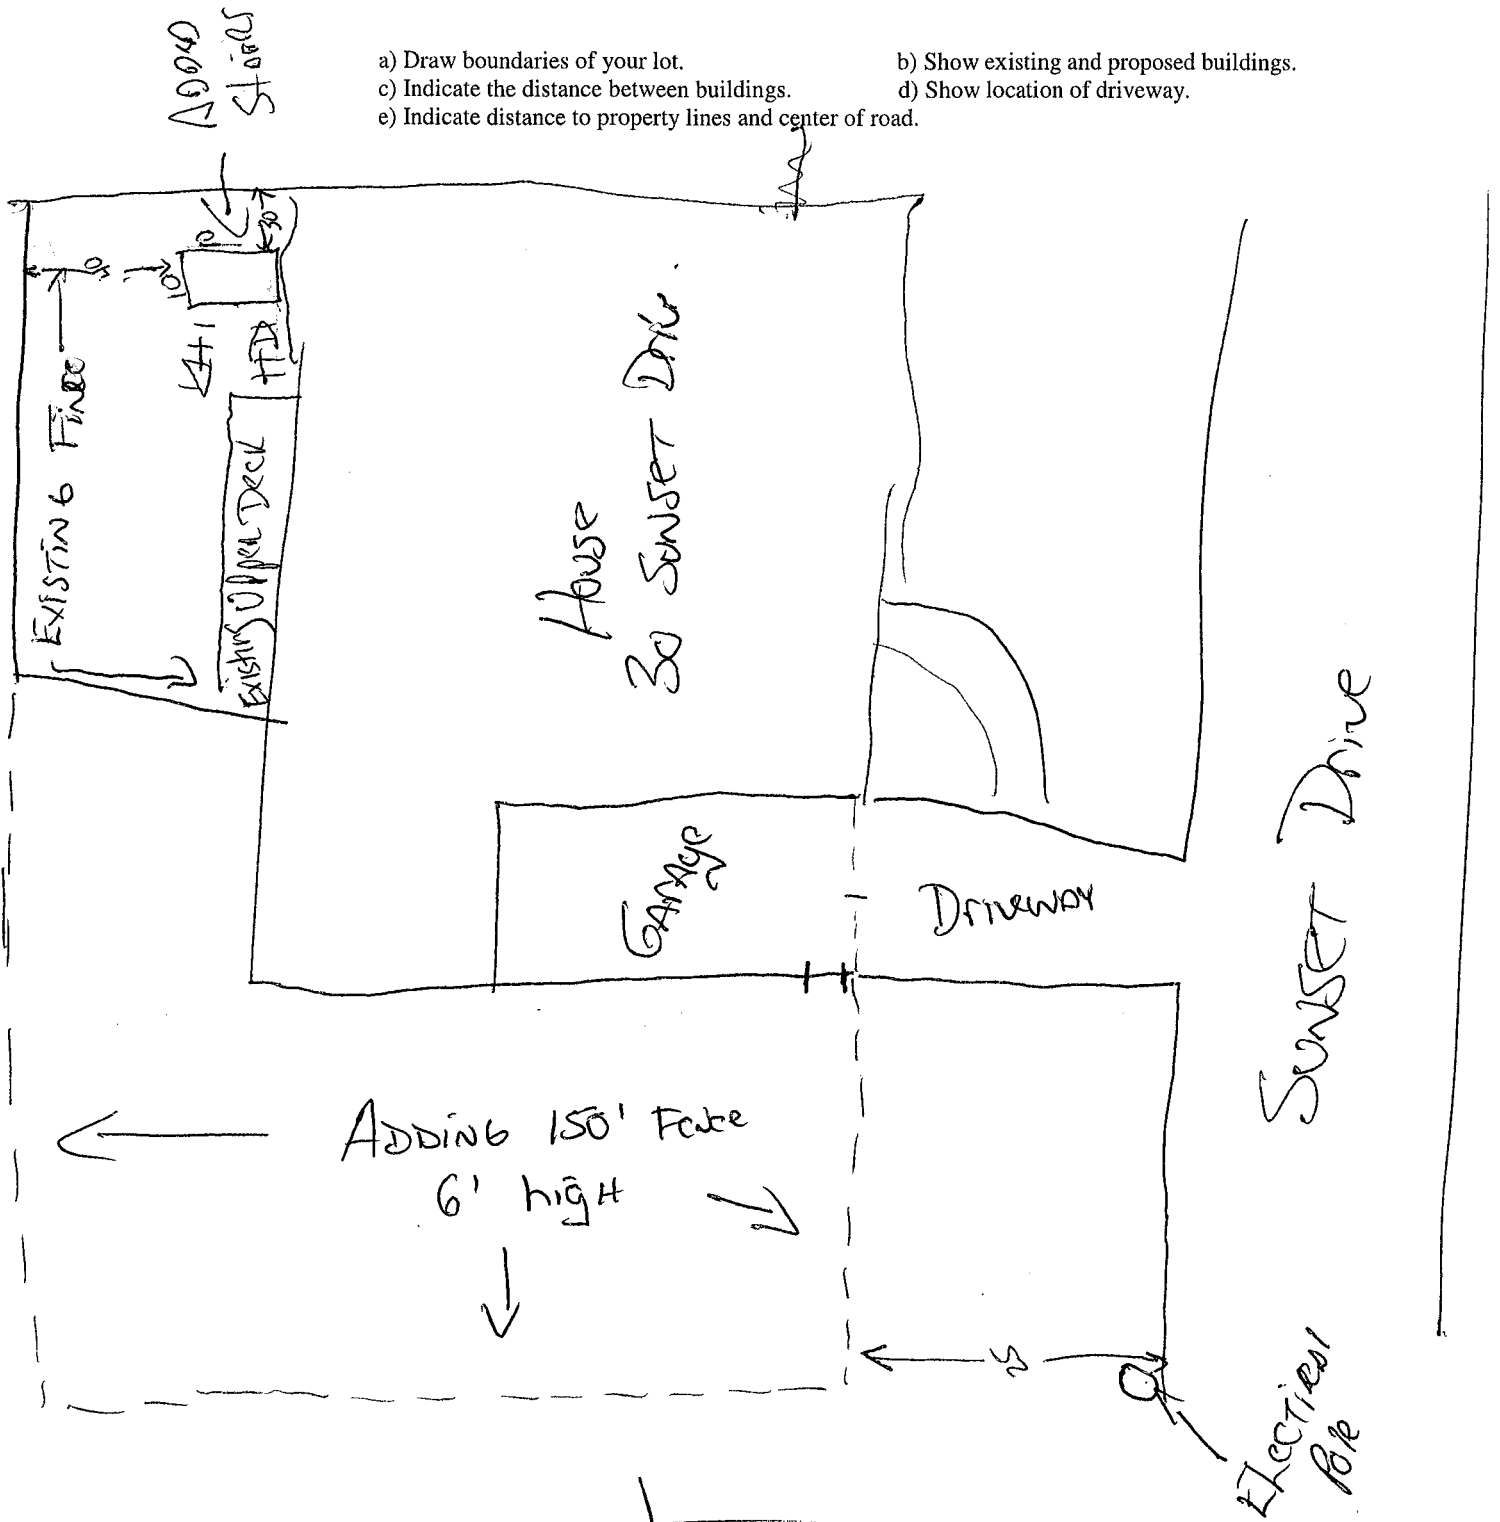 a) Draw boundaries of your lot.
b) Show existing and proposed buildings.
c) Indicate the distance between buildings.
d) Show location of driveway.
e) Indicate distance to property lines and center of road.
Stairs
30
10
10
EXISTING
Existing Upper Deck
House
30 SUNSET Drive.
GARAGE
DRIVEWAY
SUNSET Drive
ADDING 150' Fence
6' high
Electrical
Pole